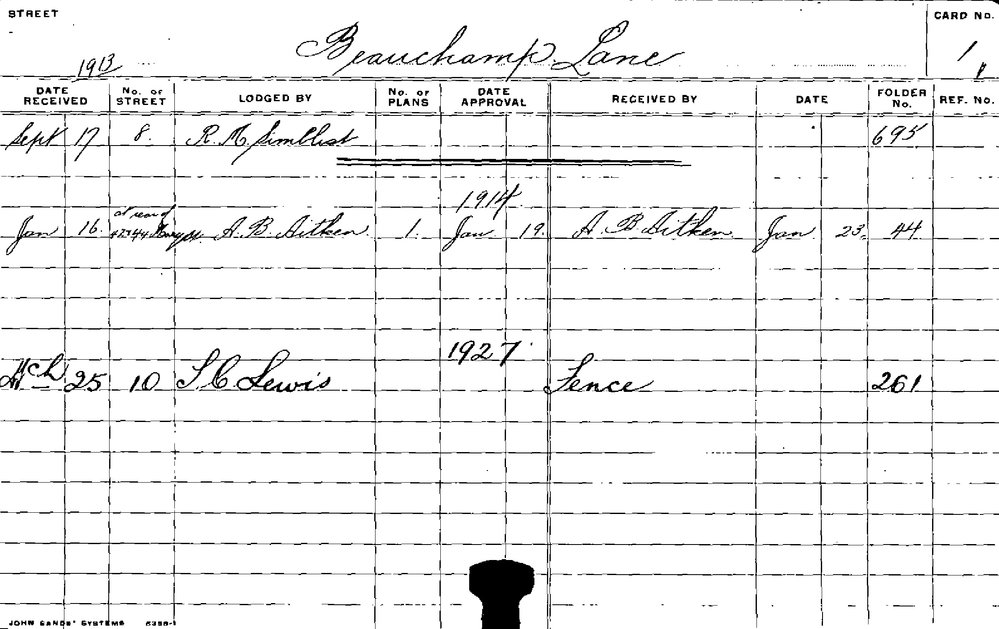 STREET
Beauchamp Lane
CARD No.
1
1913
DATE RECEIVED
No. OF STREET
LODGED BY
No. OF PLANS
DATE APPROVAL
RECEIVED BY
DATE
FOLDER No.
REF. No.
Sept 17 8. R. M. Simblist 695
1914
at rear of
Jan 16. 44 A. B. Aitken 1. Jan 19. A. B. Aitken Jan 23. 44
1927
Mch 25 10 S. C. Lewis Fence 261
JOHN SANDS' SYSTEMS